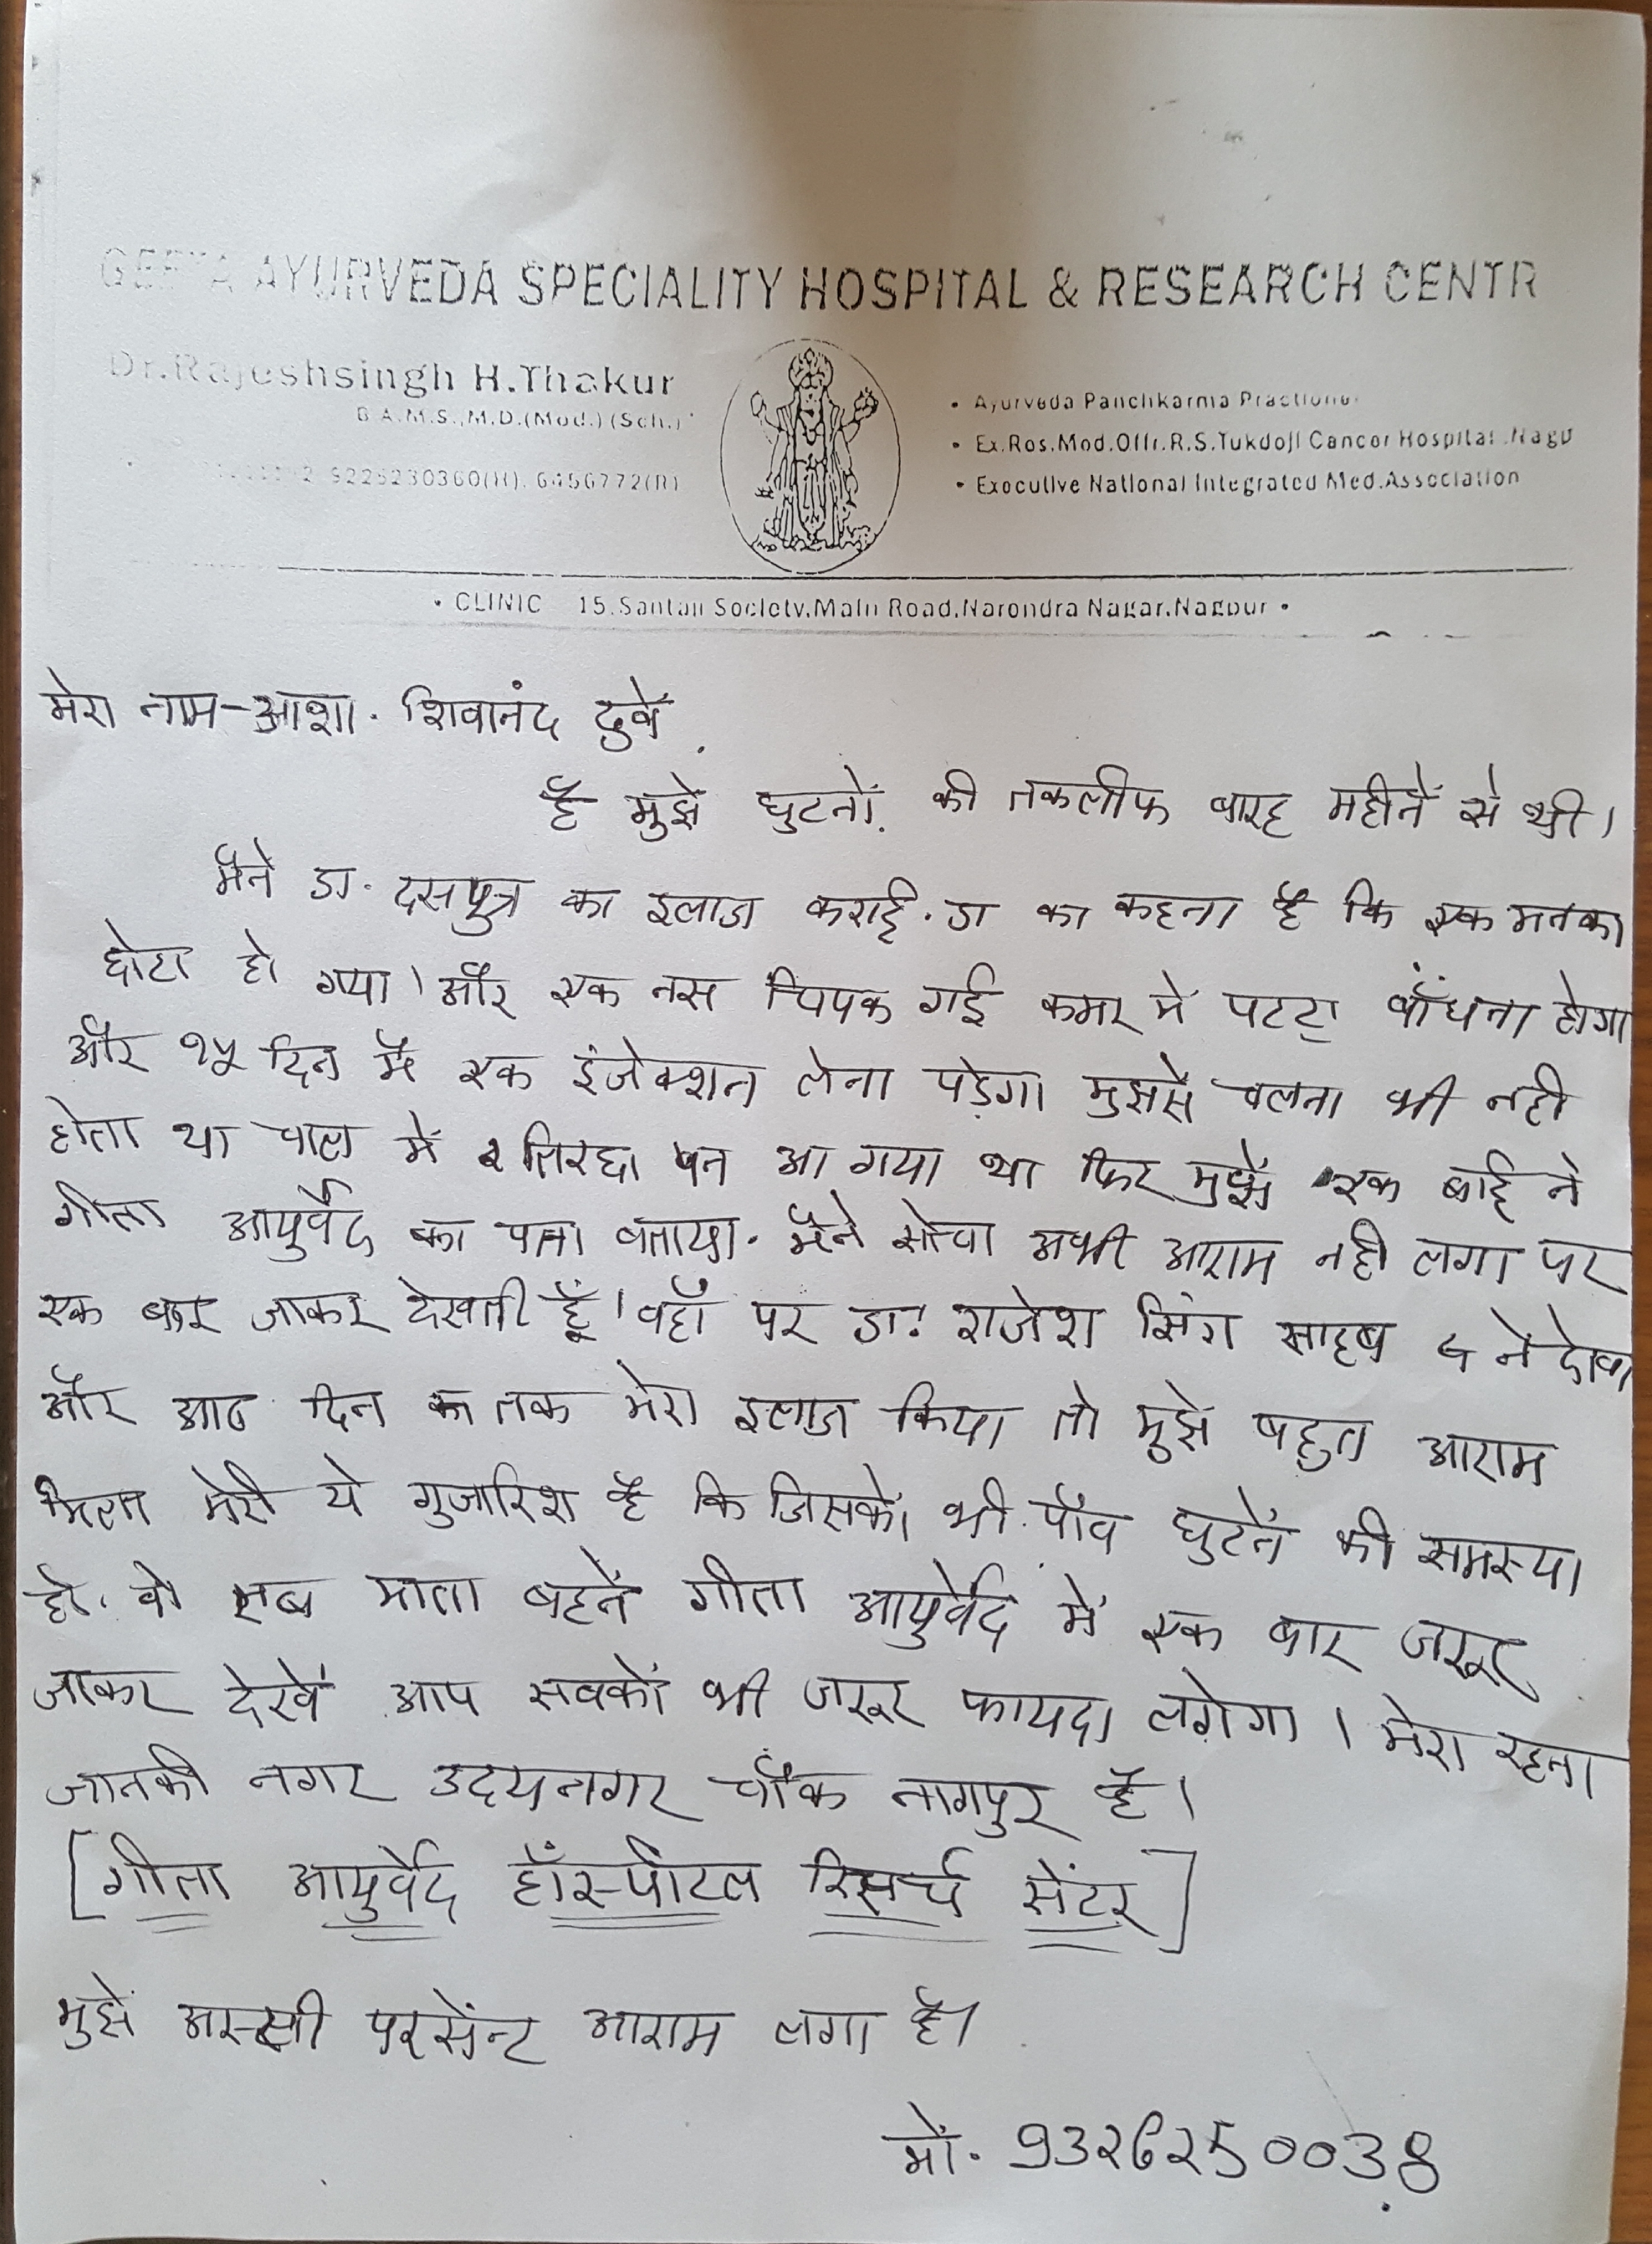 GEETA AYURVEDA SPECIALITY HOSPITAL & RESEARCH CENTR
Dr.Rajeshsingh H.Thakur
B.A.M.S.,M.D.(Med.) (Sch.)
9226230360(H), 6456772(R)
• Ayurveda Panchkarma Practione
• Ex.Res.Med.Offr.R.S.Tukdoji Cancer Hospital.Nagp
• Executive National Integrated Med.Association
• CLINIC 15.Santaji Society.Main Road.Narendra Nagar.Nagpur •
मेरा नाम-आशा. शिवानंद दुबे
है मुझे घुटनों की तकलीफ बारह महीनें से थी।
मैने डा. दसपुत्र का इलाज कराई. डा का कहना है कि एक मनका
छोटा हो गया। और एक नस चिपक गई कमर में पटटा बाँधना होगा
और १५ दिन में एक इंजेक्शन लेना पडे़गा मुझसे चलना भी नही
होता था चाल में तिरछा पन आ गया था फिर मुझे एक बाई ने
गीता आयुर्वेद का पता बताया. मैने सोचा अभी आराम नही लगा पर
एक बार जाकर देखती हूँ। वहाँ पर डा. राजेश सिंग साहब ने देखा
और आठ दिन तक मेरा इलाज किया तो मुझे बहुत आराम
मिला मेरी ये गुजारिश है कि जिसको भी पाँव घुटनें की समस्या
हो. वो सब माता बहनें गीता आयुर्वेद में एक बार जरूर
जाकर देखें आप सबकों भी जरूर फायदा लगेगा। मेरा रहना
जानकी नगर उदयनगर चौक नागपुर है।
[गीता आयुर्वेद हॉस्पीटल रिसर्च सेंटर]
मुझे अस्सी परसेंन्ट आराम लगा है।
मों. 9326250038